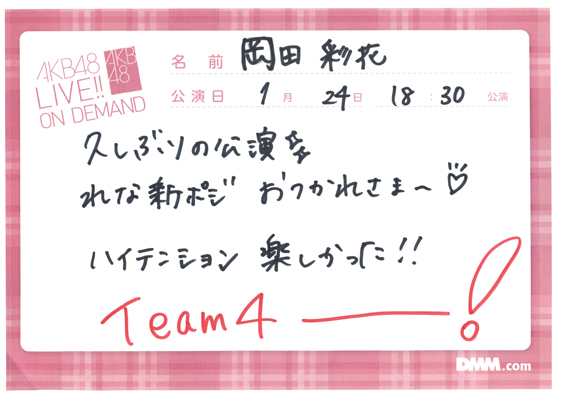 AKB48
LIVE!!
ON DEMAND
AKB
48
名前 岡田 彩花
公演日 1月 24日 18:30 公演
久しぶりの公演
れな新ポジ おつかれさま〜♡
ハイテンション 楽しかった!!
Team4 ―!
DMM.com